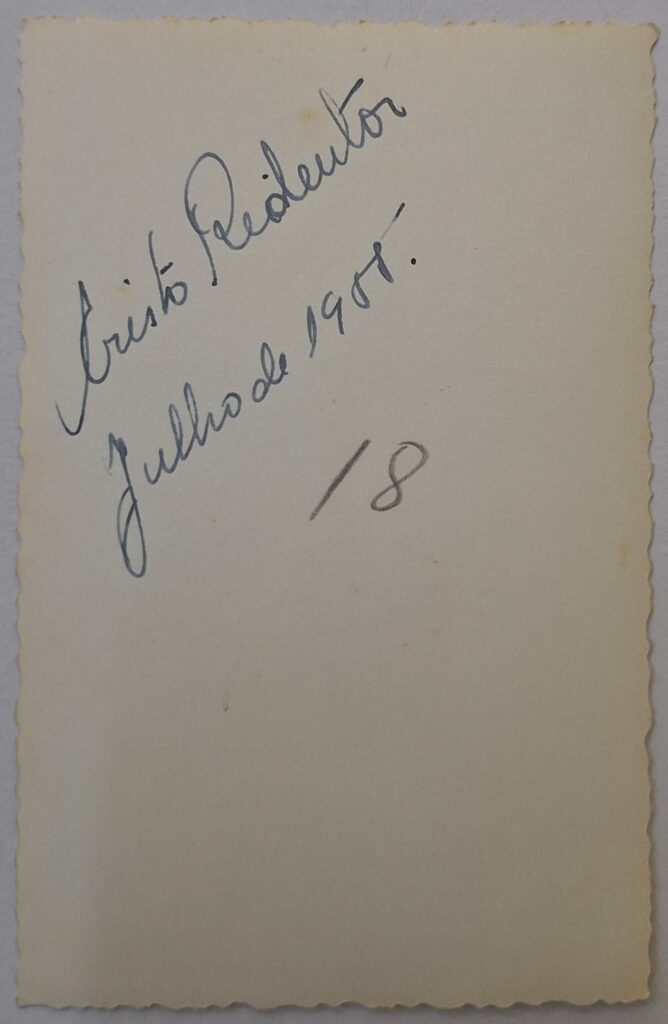 Cristo Redentor
Julho de 1955.
18